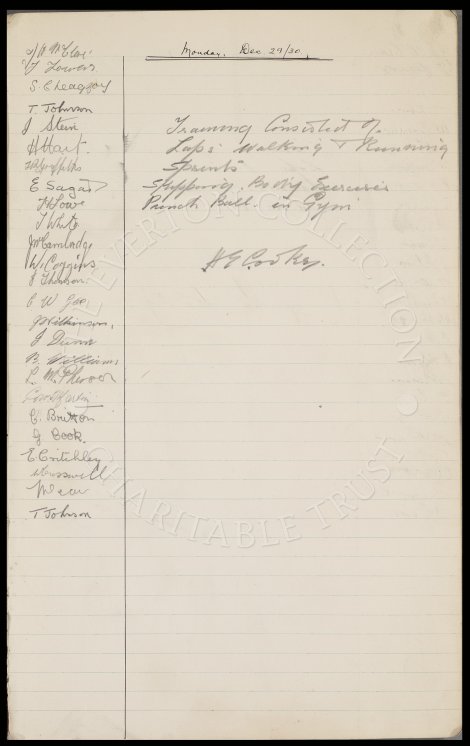 Monday, Dec 29/30.
T Lowers
S Cleaggoy
T. Johnson
J Stein
H Hart.
E Sagar
H Lowe
T White
J McCambridge
W. Coggins
J Thomson
C W Gee
J Wilkinson,
J Dunn
B. Williams
L. McPherson
C. Britton
G Cook.
E Critchley
W Cresswell
T Johnson
Training Consisted of
Laps Walking & Running
Sprints
Skipping. Body Exercises
Punch Ball. in Gym
H E Cooke.
THE EVERTON COLLECTION
CHARITABLE TRUST